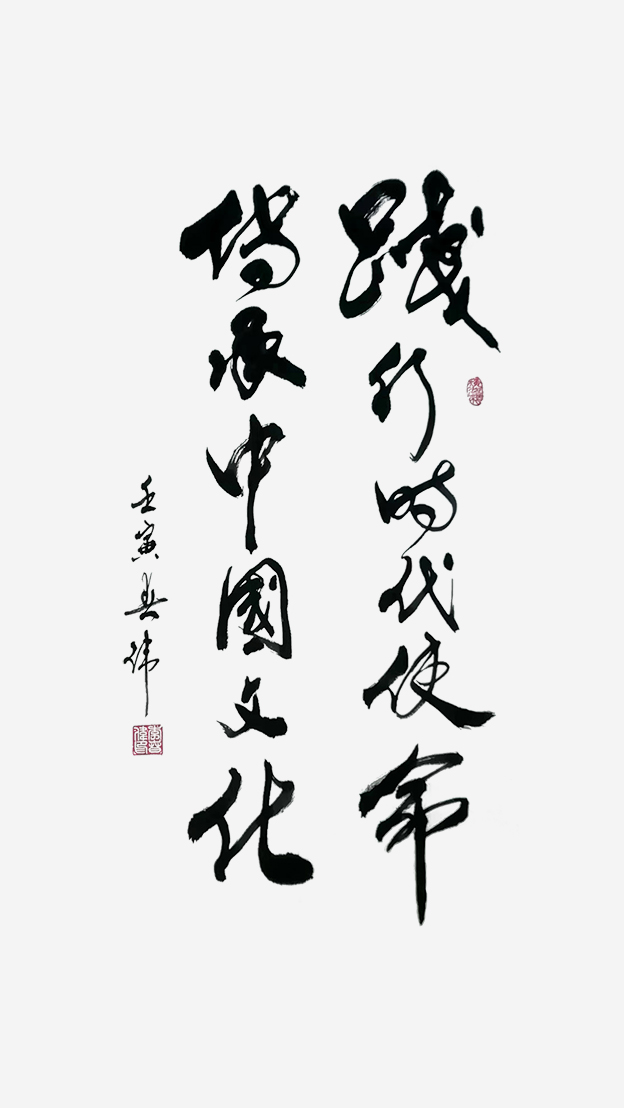 踐行时代使命
傳承中國文化
壬寅春伟